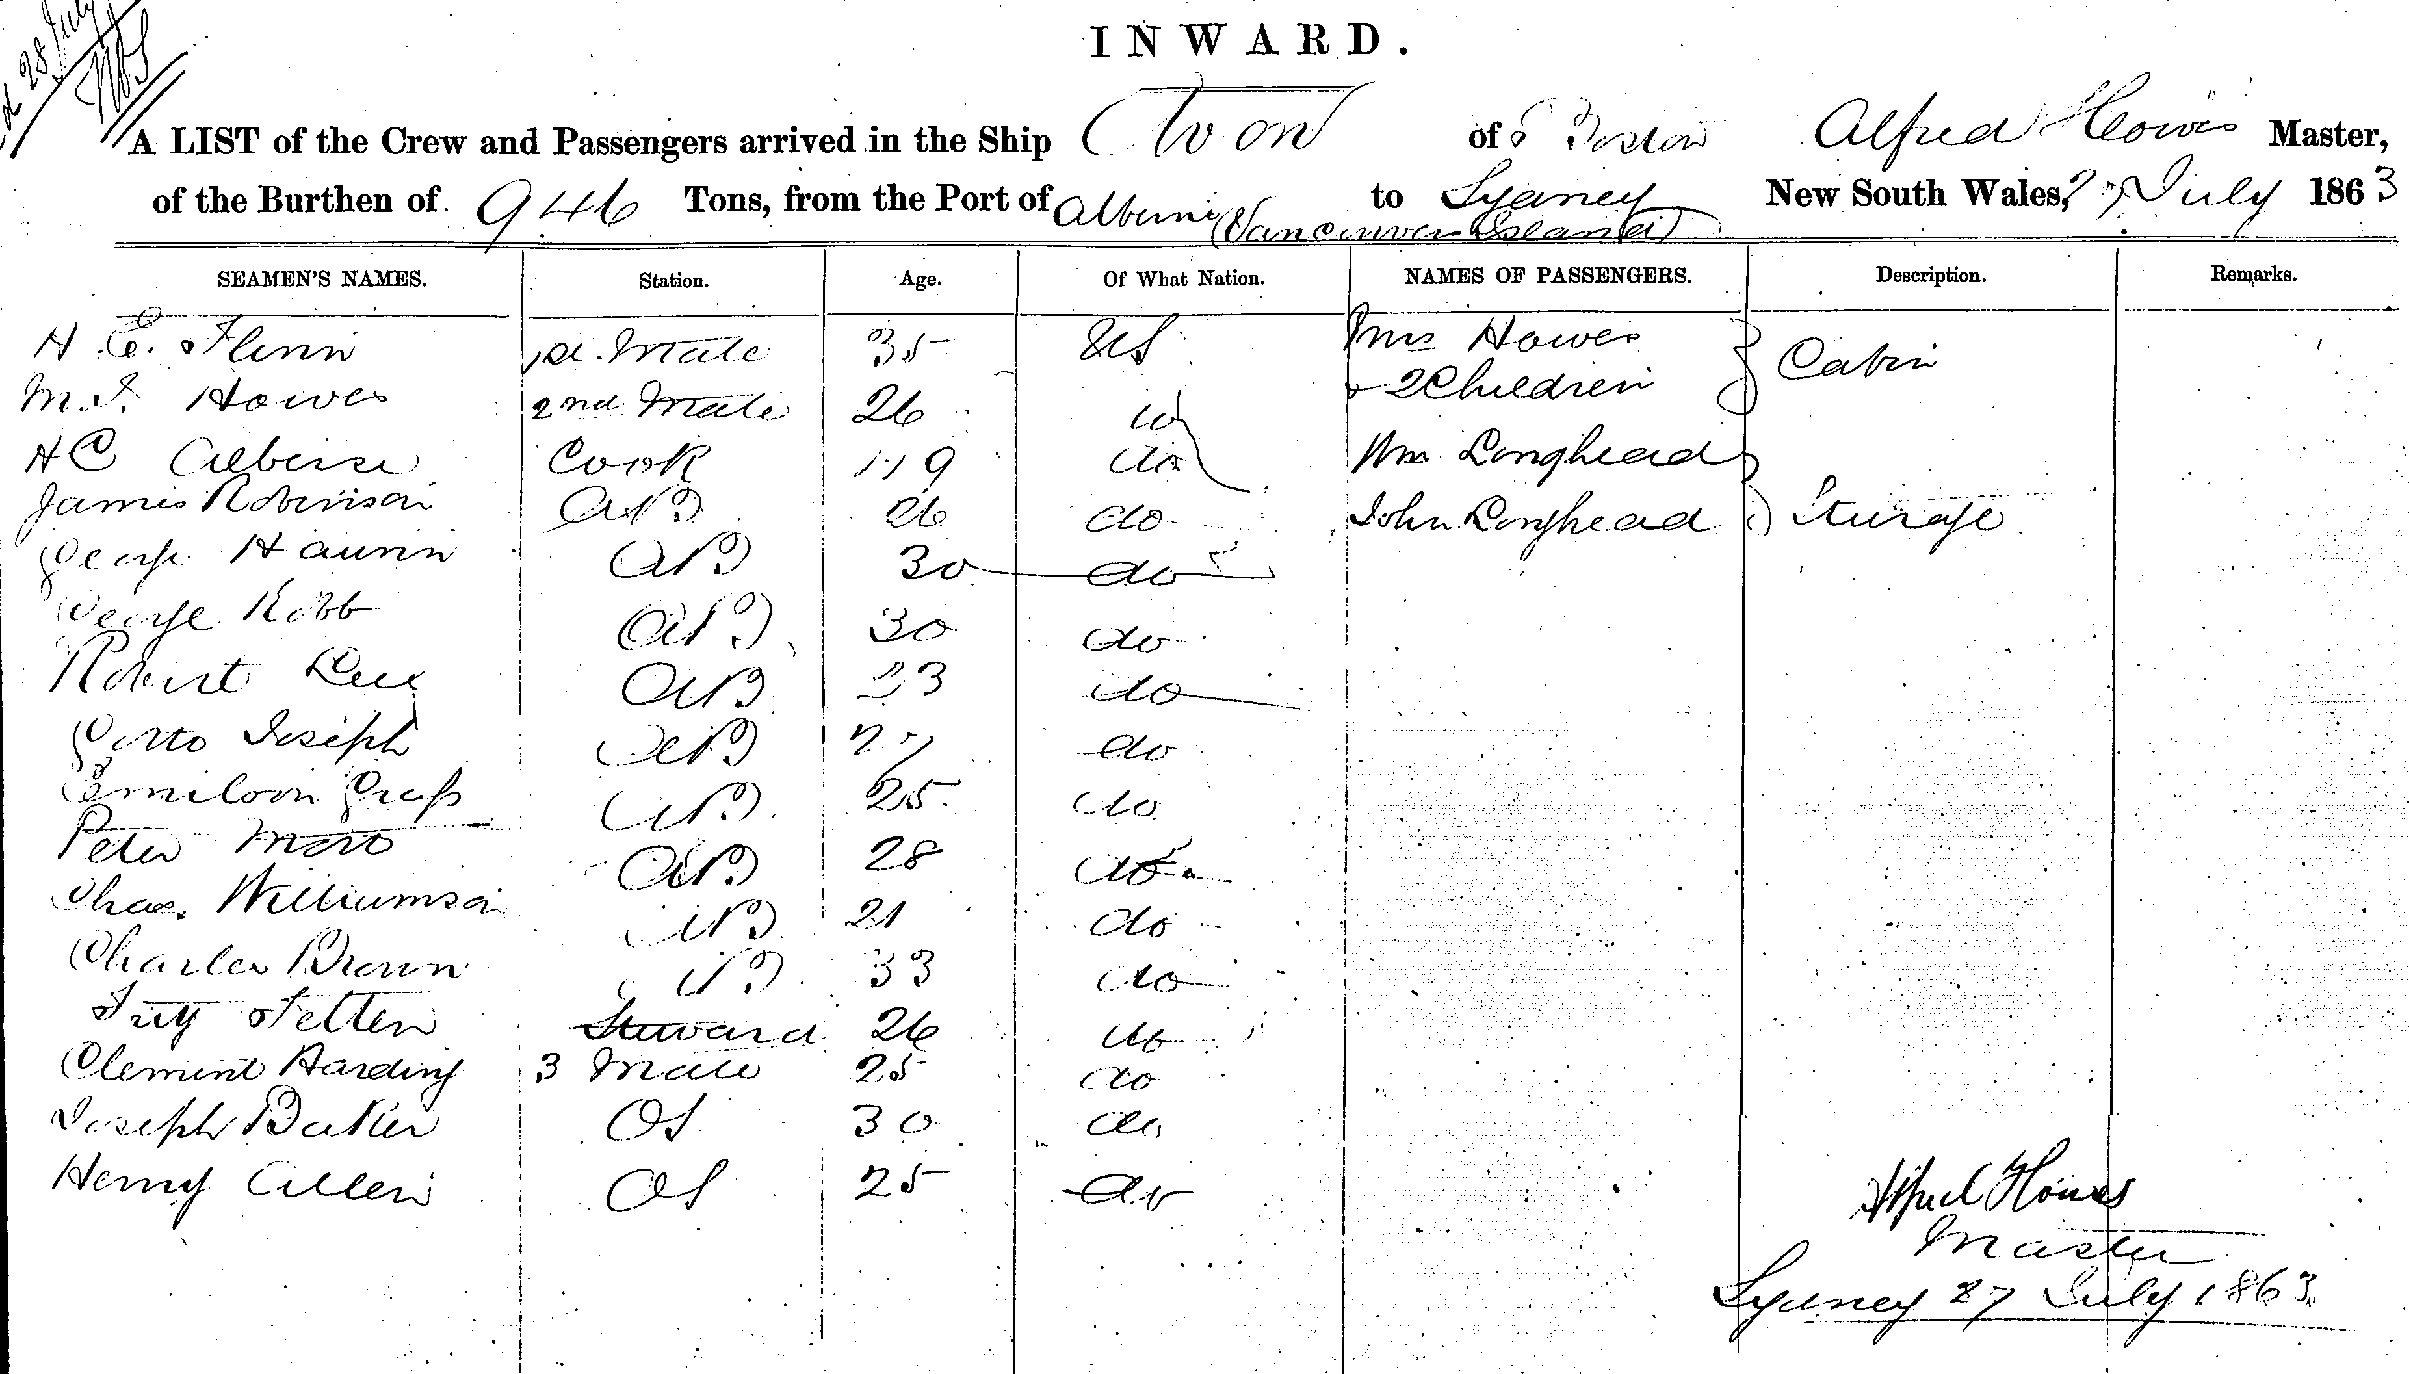 28 July
INWARD.
A LIST of the Crew and Passengers arrived in the Ship of Boston Alfred Howes Master,
of the Burthen of 946 Tons, from the Port of Alberni (Vancouver Island) to Sydney New South Wales, 27 July 1863
SEAMEN'S NAMES. Station. Age. Of What Nation. NAMES OF PASSENGERS. Description. Remarks.
H. E. Flinn 1st. Mate 35 US Mrs Howes
M. Howes 2nd Mate 26 & 2 Children Cabin
H C Cook do Wm Longhead
James Robinson AB 26 do John Longhead Steerage
George AB 30 do
George Robb AB 30 do
Robert AB 23 do
Joseph AB 27 do
AB 25 do
Peter AB 28 do
Chas. Williamson AB 21 do
Charles Brown AB 33 do
Steward 26 do
Clement Harding 3 Mate 25 do
Joseph Baker OS 30 do
Henry Allen OS 25 do
Alfred Howes
Master
Sydney 27 July 1863